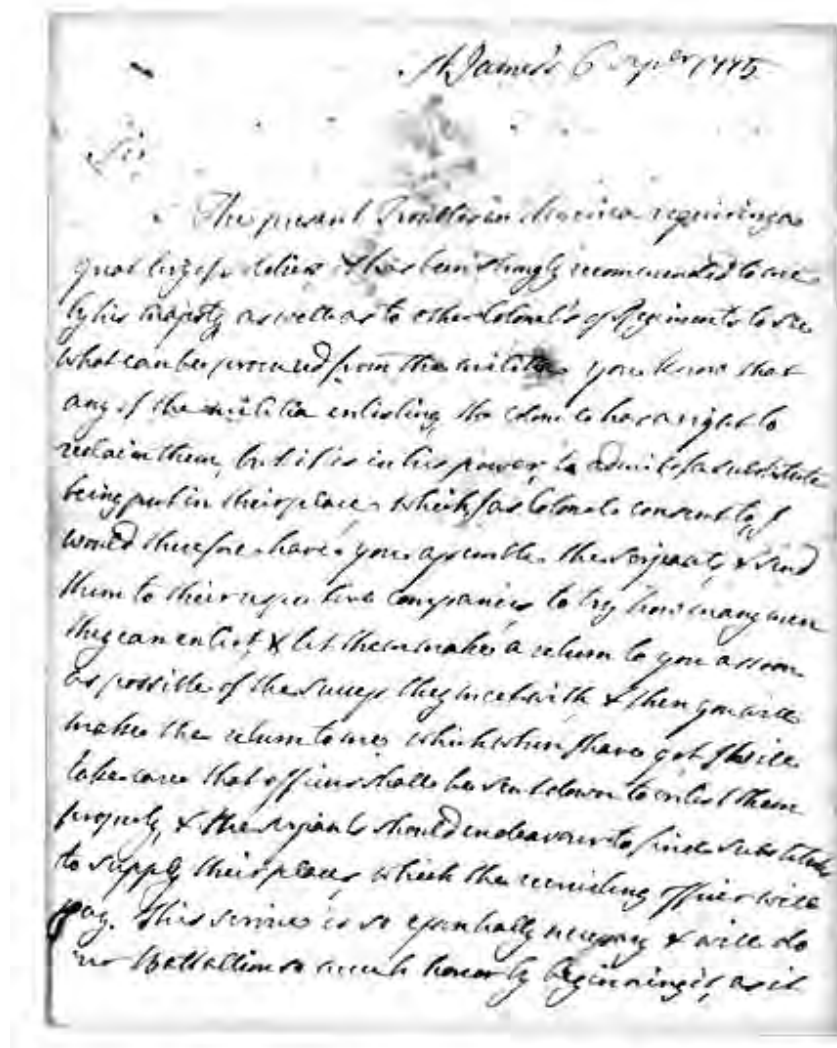 St James's 6 Sepber 1775
Sir
The present Troubles in America requiring a
great levy of soldiers it has been strongly recommended to me
by his Majesty as well as to other Colonel's of Regiments to see
what can be procured from the militia you know that
any of the militia enlisting, the Colonel has a right to
reclaim them, but it is in his power to admit of a substitute
being put in their place, which I as Colonel consent to, I
would therefore have you assemble the serjeants, & send
them to their respective Companies to try how many men
they can enlist, & let them make a return to you as soon
as possible of the success they meet with & then you will
make the return to me, which when I have got I will
take care that officers shall be sent down to enlist them
properly & the serjeants should endeavour to find substitutes
to supply their places, which the recruiting officer will
pay. This service is so essentially necessary & will do
our Battallion so much honor by beginning it, as it